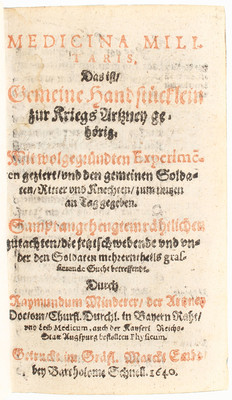 MEDICINA MILI-
TARIS,
Das ist/
Gemeine Handstücklein
zur Kriegs Artzney ge-
hörig.
Mit wolgegründten Experimē-
en geziert/und den gemeinen Solda-
ten/Ritter und Knechten/ zum nutzen
an Tag gegeben.
Sampt angehengtem räthlichen
gutachten/die jetzschwebende vnd vn-
der den Soldaten mehrerntheils gras-
sierende Sucht betreffende.
Durch
Raymundum Minderer, der Artzney
Doctorn/Churfl. Durchl. in Bayern Raht/
und Leib Medicum, auch der Kayserl Reichs-
Stat Augspurg bestellten Physicum.
Getruckt im Gräfl. Marckt Embs/
bey Bartholome Schnell. 1640.